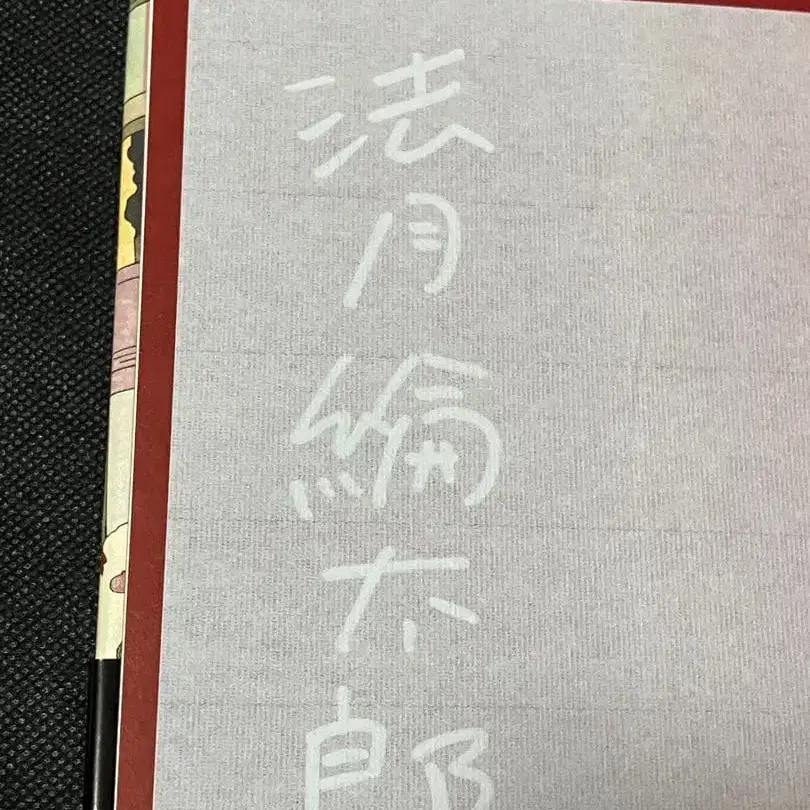 法月綸太郎